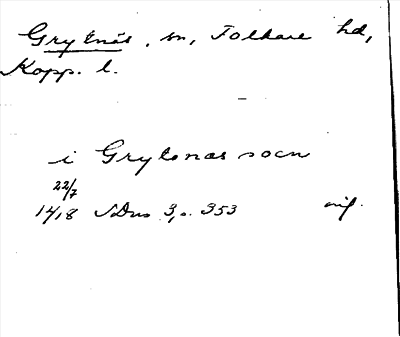 Grytnäs, sn, Folkare hd,
Kopp. l.
i Grytonæs socn
22/7
1418 SDns 3, s. 353 orig.